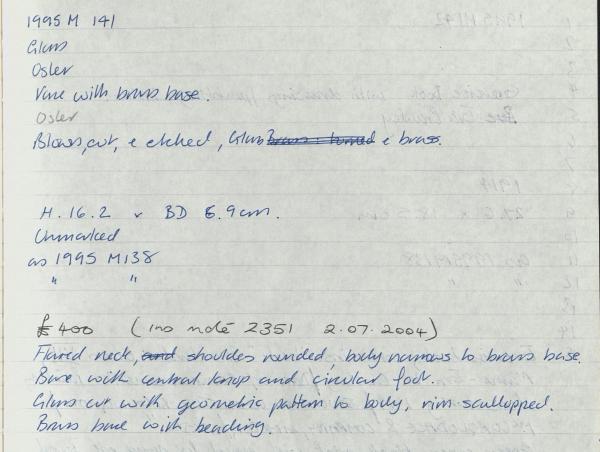 1995 M 141
Glass
Osler
Vase with brass base.
Osler
Blown, cut, & etched, Glass Brass: turned & brass.
H. 16.2 x BD 6.9cm.
Unmarked
as 1995 M138
" "
£400 (ino note 2351 2.07.2004)
Flared neck, and shoulder rounded body narrows to brass base.
Base with central knop and circular foot.
Glass cut with geometric pattern to body, rim scallopped.
Brass base with beading.